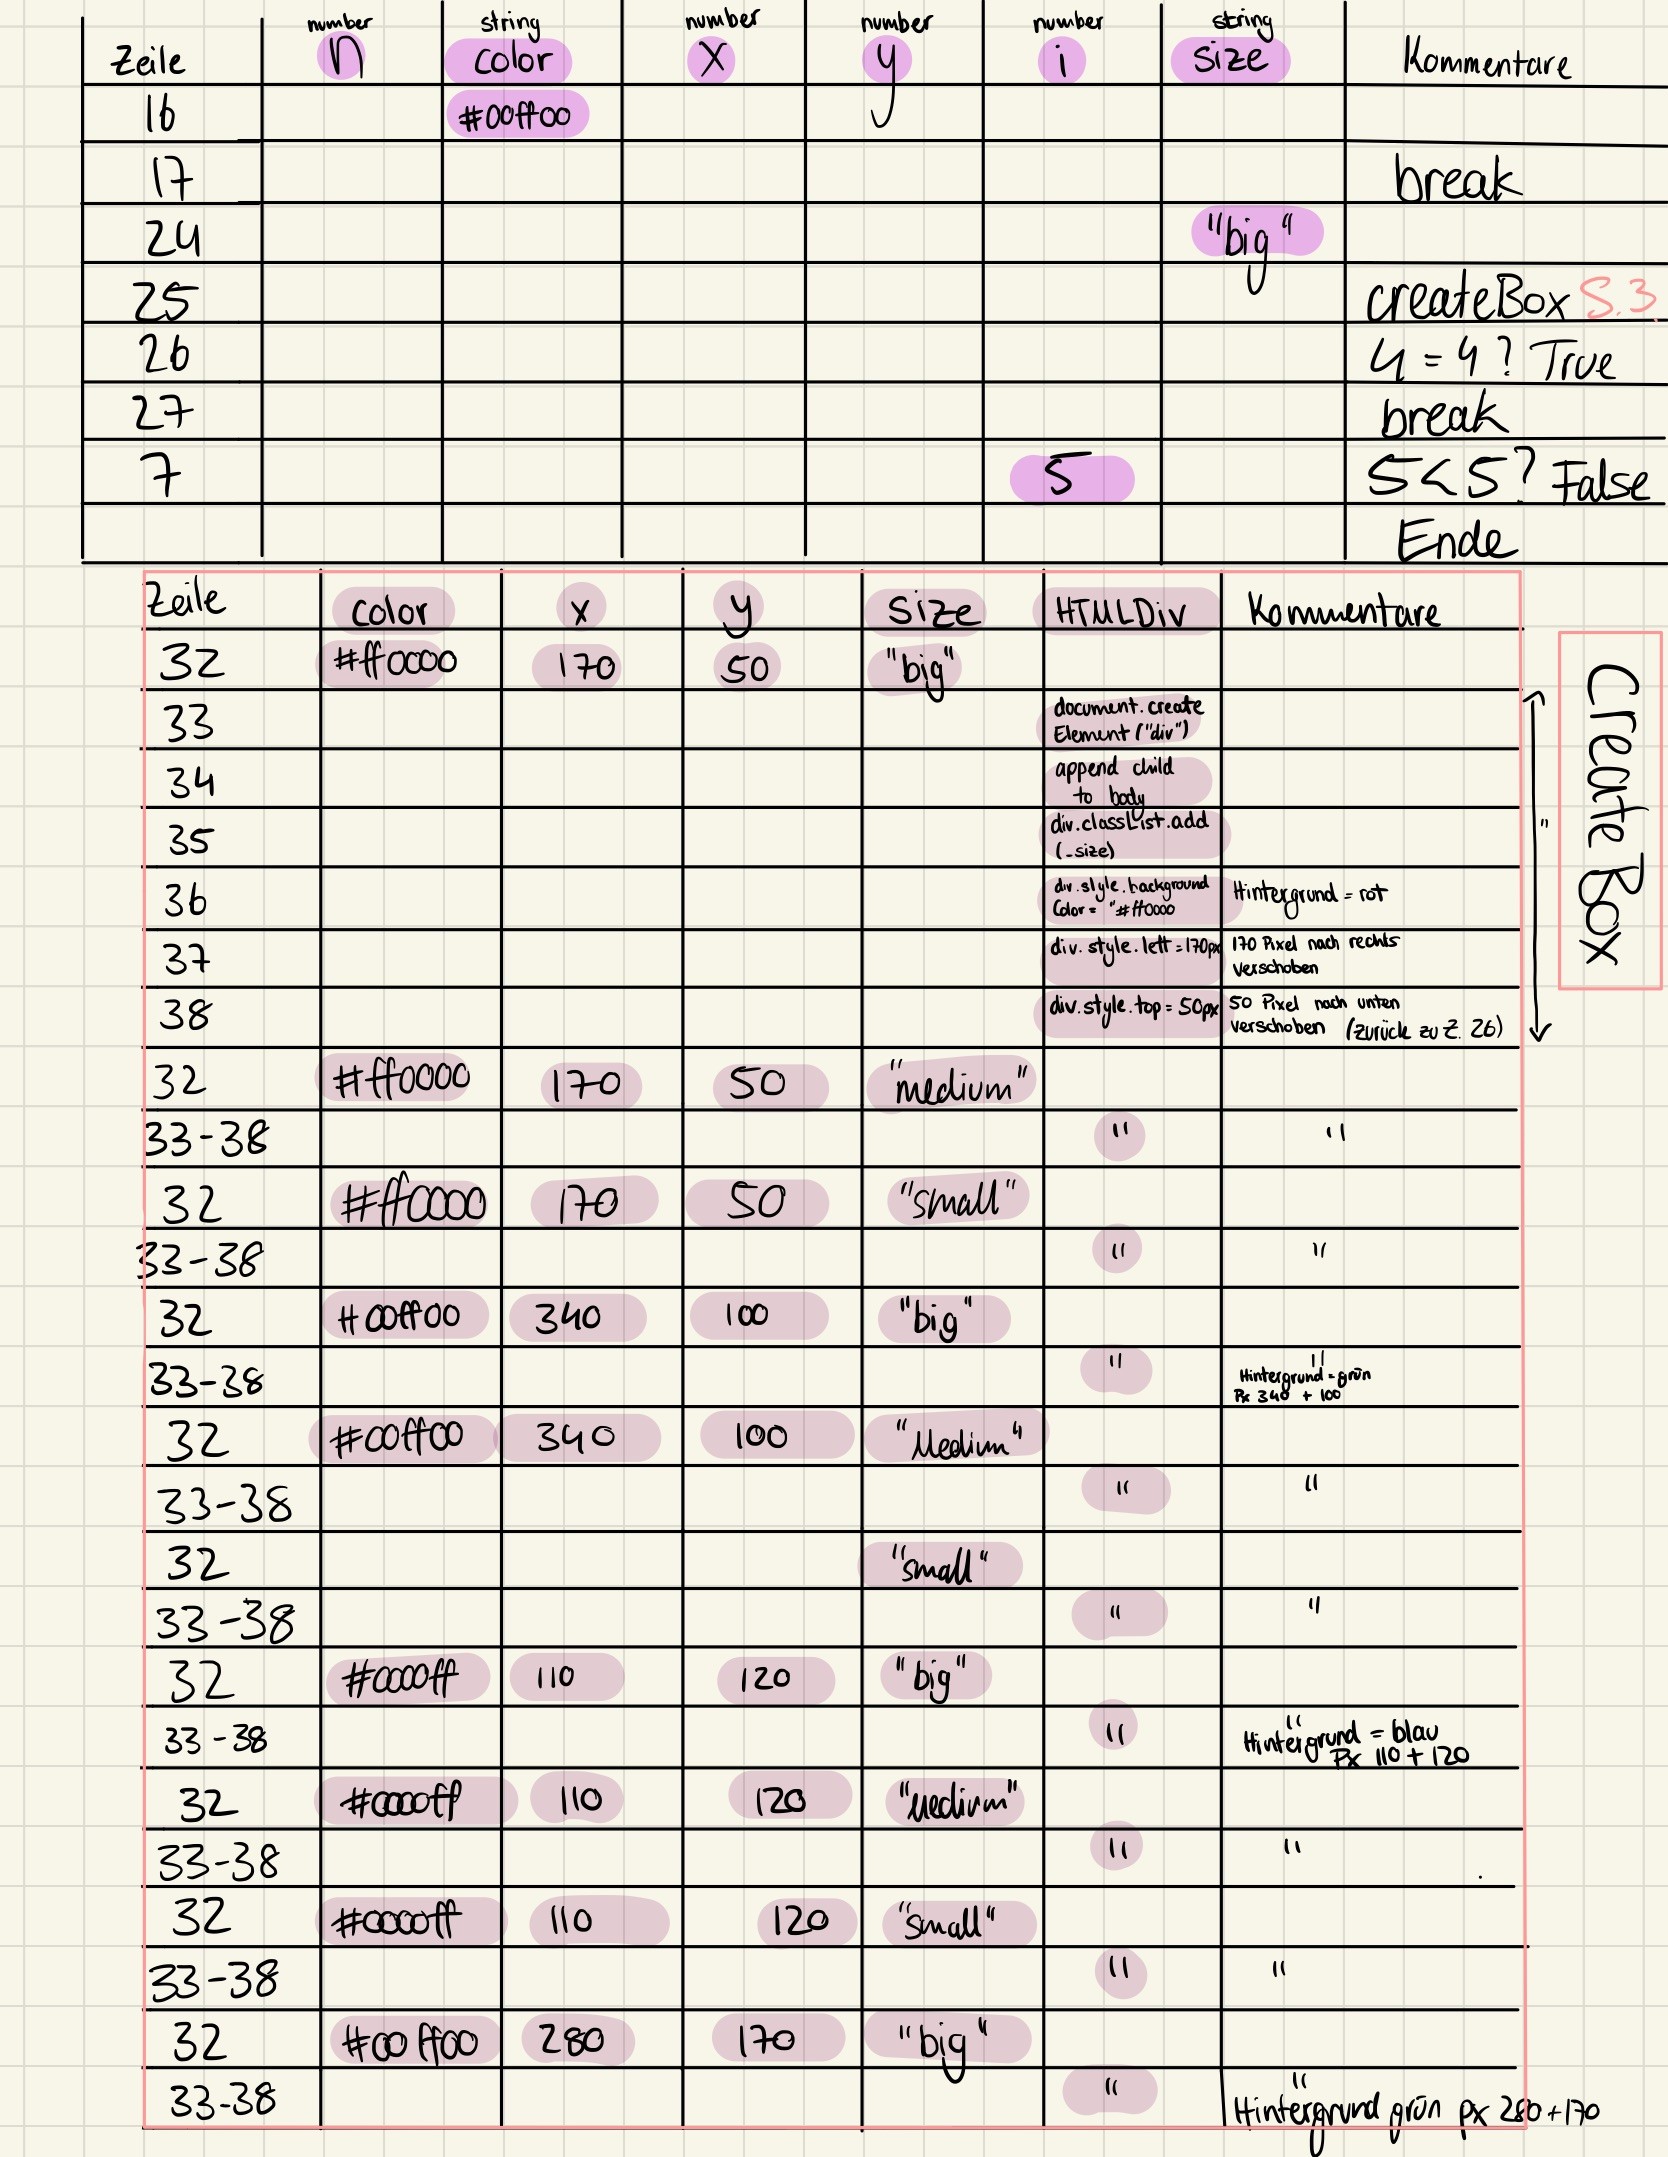 number string number number number string
Zeile n color x y i size Kommentare
16 #00ff00
17 break
24 "big"
25 createBox S.3.
26 4 = 4 ? True
27 break
7 5 5 < 5 ? False
Ende
Zeile color x y Size HTMLDiv Kommentare
32 #ff0000 170 50 "big"
33 document.create
Element ("div")
34 append child
to body
35 div.classList.add
(_size)
36 div.style.background Hintergrund = rot
Color = "#ff0000
37 div.style.left = 170px 170 Pixel nach rechts
verschoben
38 div.style.top = 50px 50 Pixel nach unten
verschoben (zurück zu Z. 26)
Create Box
"
32 #ff0000 170 50 "medium"
33-38 " "
32 #ff0000 170 50 "small"
33-38 " "
32 #00ff00 340 100 "big"
33-38 " "
Hintergrund = grün
Px 340 + 100
32 #00ff00 340 100 "Medium"
33-38 " "
32 "small"
33-38 " "
32 #0000ff 110 120 "big"
33-38 " "
Hintergrund = blau
Px 110 + 120
32 #0000ff 110 120 "Medium"
33-38 " "
32 #0000ff 110 120 "small"
33-38 " "
32 #00ff00 280 170 "big"
33-38 " "
Hintergrund grün px 280 + 170